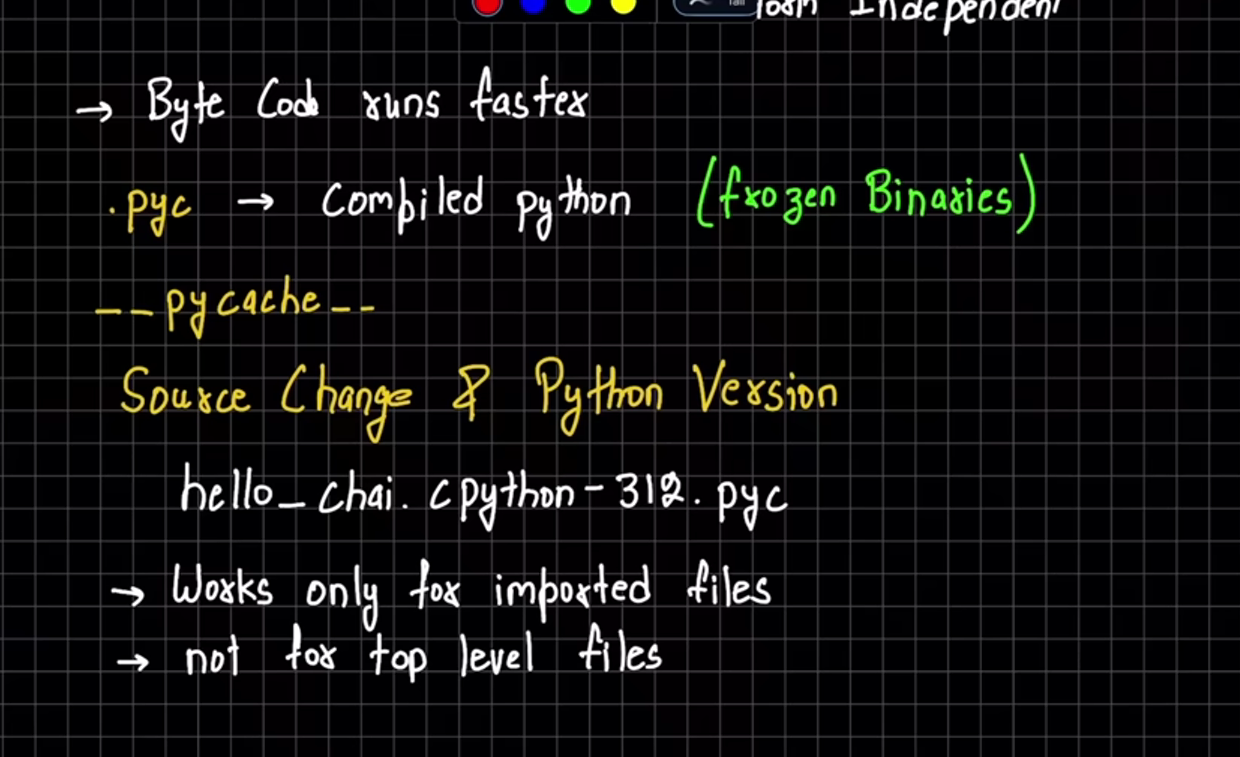 Independent
→ Byte Code runs faster
.pyc → Compiled python (frozen Binaries)
__pycache__
Source Change & Python Version
hello_chai.cpython-312.pyc
→ Works only for imported files
→ not for top level files